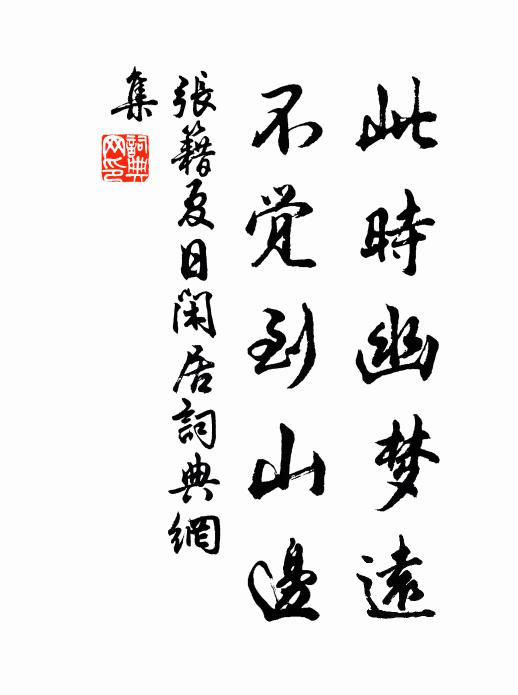 此時幽梦遠
不覚到山邊
張籍夏日閑居詞典網
集
詞典
网印